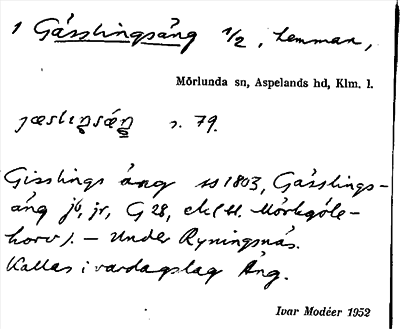 1 Gässlingsäng 1/2, hemman,
Mörlunda sn, Aspelands hd, Klm. l.
s. 79.
Gisslings äng ss 1803, Gässlings-
äng jb, jr, G 28, ek (H. Mörkgöle-
horv). – Under Ryningsnäs.
Kallas i vardagslag Äng.
Ivar Modéer 1952